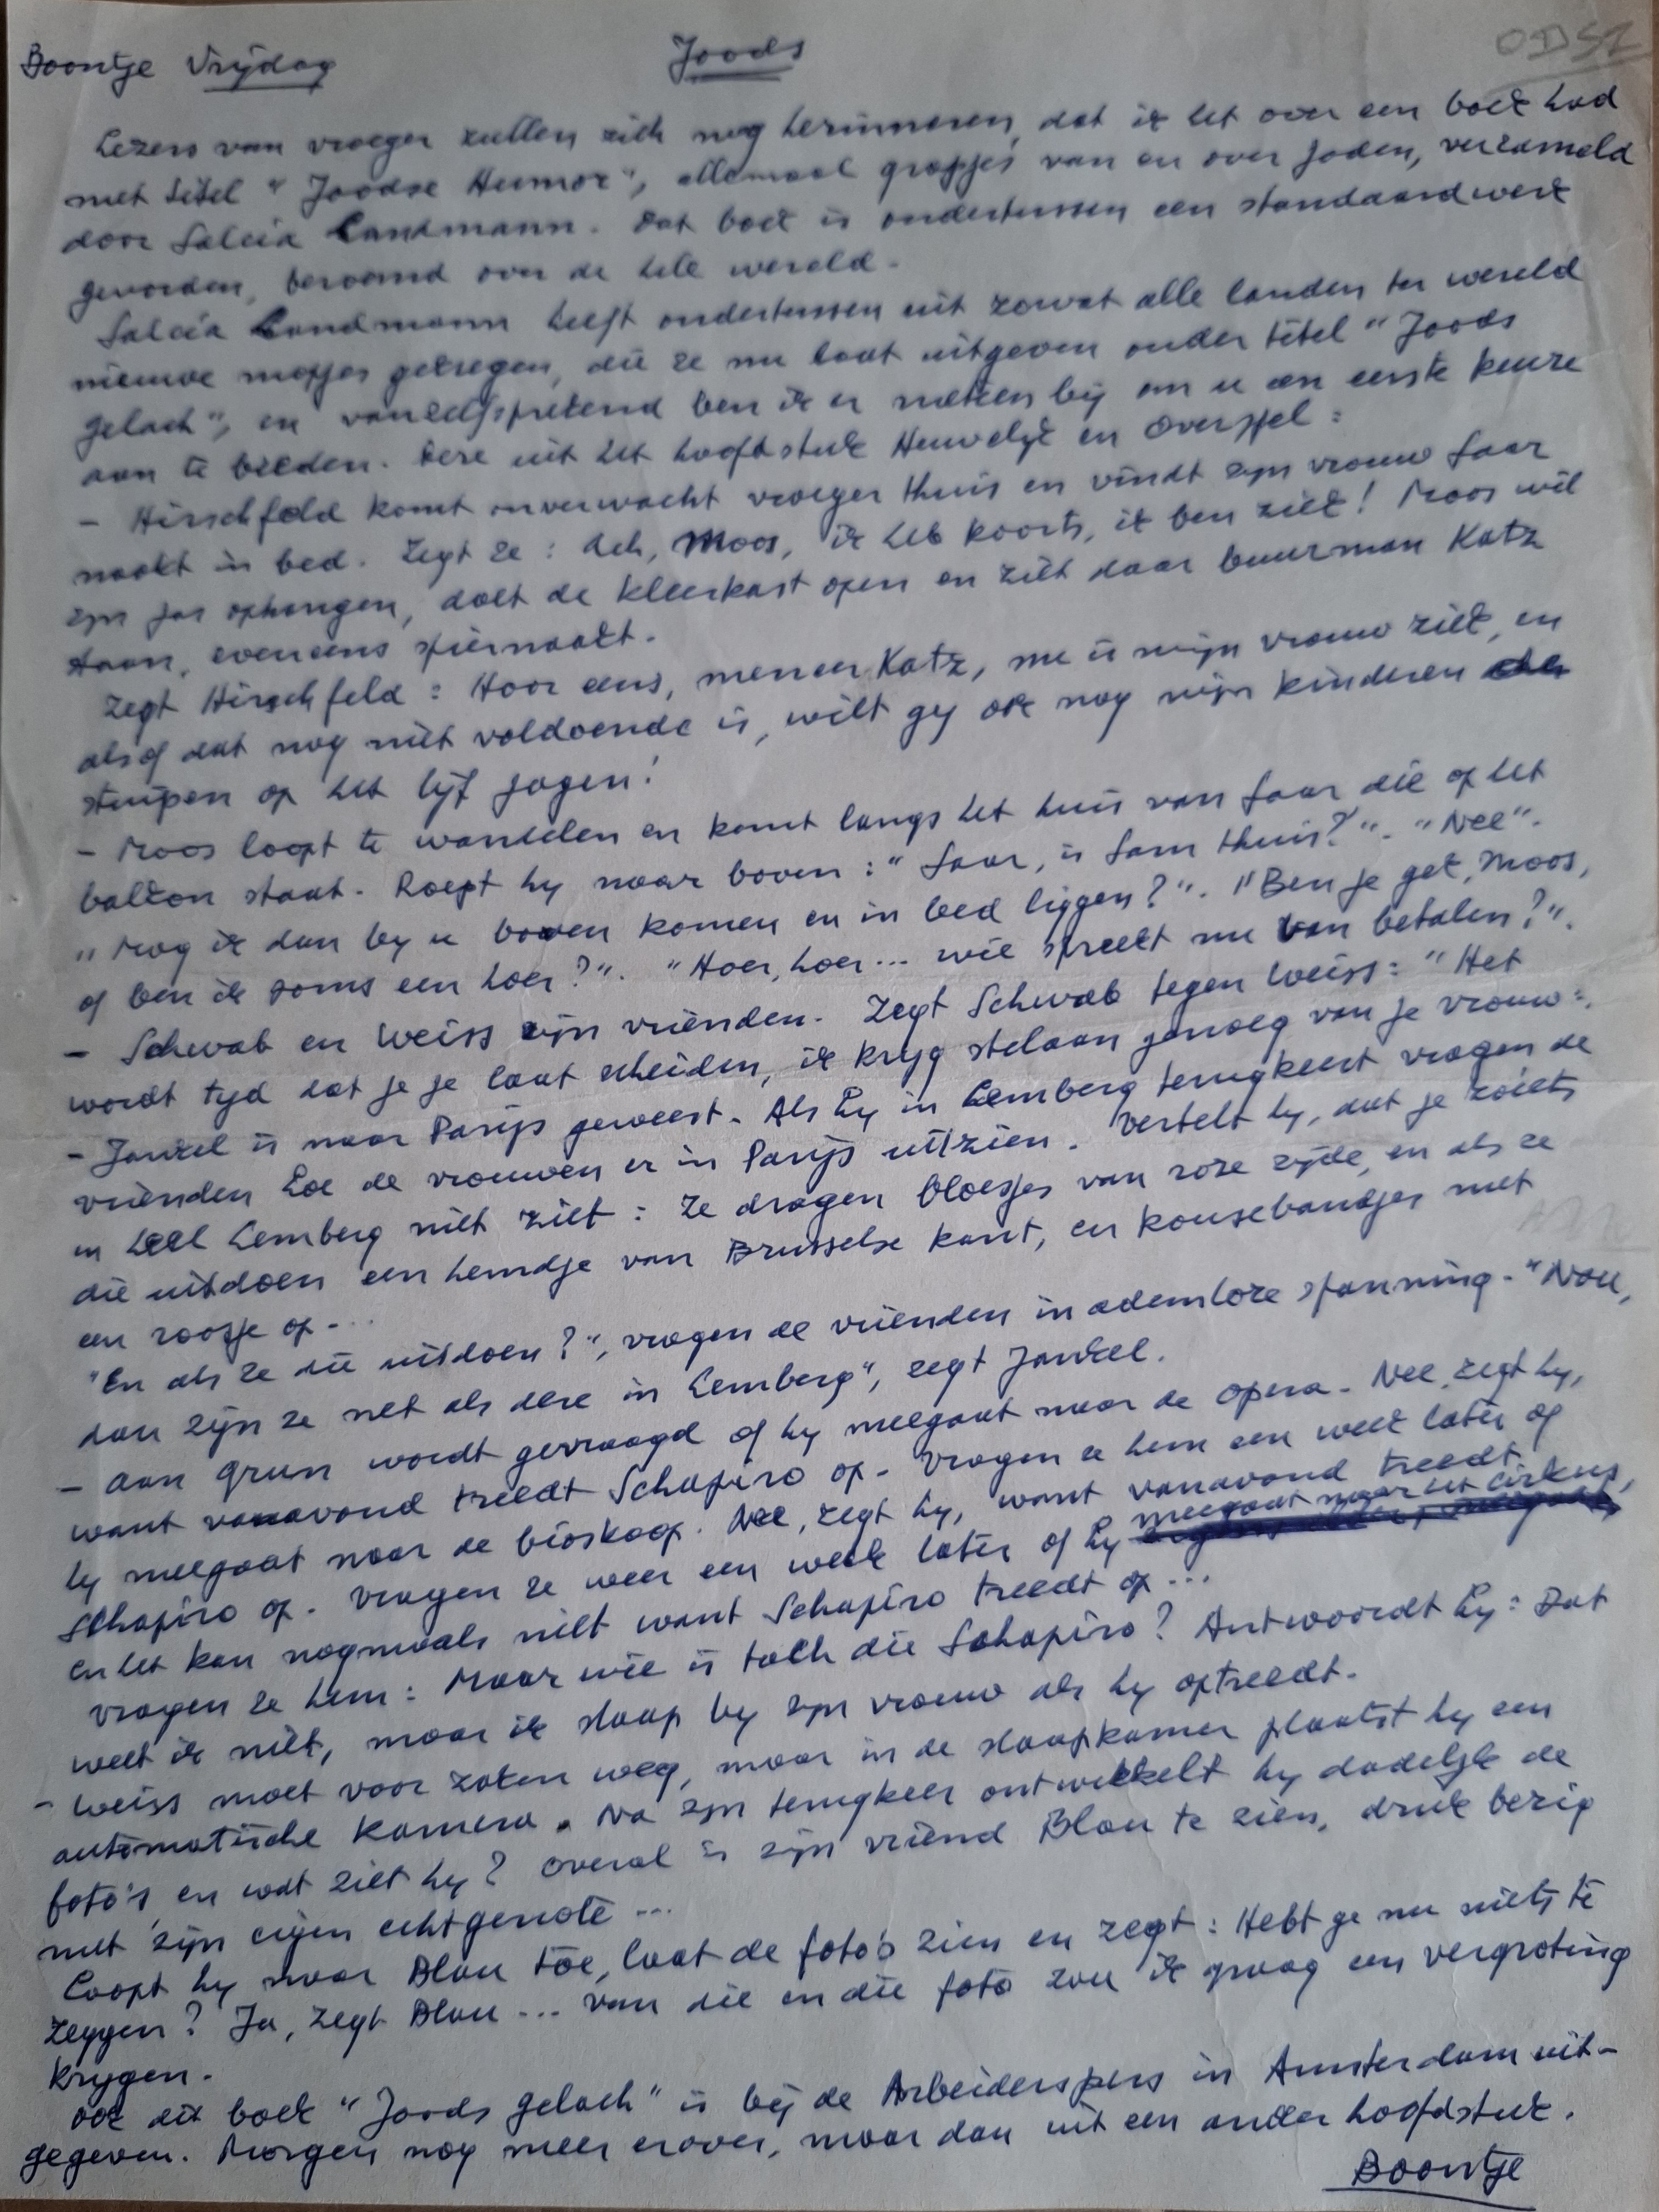 Boontje Vrijdag
Joods
ODSZ
Lezers van vroeger zullen zich nog herinneren, dat ik het over een boek had
met titel "Joodse Humor", allemaal grapjes van en over joden, verzameld
door Salcia Landmann. Dat boek is ondertussen een standaardwerk
geworden, beroemd over de hele wereld.
Salcia Landmann heeft ondertussen uit zowat alle landen ter wereld
nieuwe mopjes gekregen, die ze nu laat uitgeven onder titel "Joods
gelach", en vanzelfsprekend ben ik er meteen bij om u een eerste keuze
aan te bieden. Deze uit het hoofdstuk Huwelijk en Overspel:
- Hirschfeld komt onverwacht vroeger thuis en vindt zijn vrouw Saar
naakt in bed. Zegt ze: Ach, Moos, ik heb koorts, ik ben ziek! Moos wil
zijn jas ophangen, doet de kleerkast open en ziet daar buurman Katz
staan, eveneens spiernaakt.
Zegt Hirschfeld: Hoor eens, meneer Katz, nu is mijn vrouw ziek, en
alsof dat nog niet voldoende is, wilt gij ook nog mijn kinderen
stuipen op het lijf jagen!
- Moos loopt te wandelen en komt langs het huis van Saar die op het
balkon staat. Roept hij naar boven: "Saar, is Sam thuis?". "Nee".
"Mag ik dan bij u boven komen en in bed liggen?". "Ben je gek, Moos,
of ben ik soms een hoer?". "Hoer, hoer... wie spreekt nu van betalen?".
- Schwab en Weiss zijn vrienden. Zegt Schwab tegen Weiss: "Het
wordt tijd dat je je laat scheiden, ik krijg stilaan genoeg van je vrouw".
- Jankel is naar Parijs geweest. Als hij in Lemberg terugkeert vragen de
vrienden hoe de vrouwen er in Parijs uitzien. Vertelt hij, dat je zoiets
in heel Lemberg niet ziet: Ze dragen bloesjes van roze zijde, en als ze
die uitdoen een hemdje van Brusselse kant, en kousebandjes met
een roosje op...
"En als ze die uitdoen?", vragen de vrienden in ademloze spanning. "Nou,
dan zijn ze net als deze in Lemberg", zegt Jankel.
- Aan Grun wordt gevraagd of hij meegaat naar de opera. Nee, zegt hij,
want vanavond treedt Schapiro op. Vragen ze hem een week later of
hij meegaat naar de bioskoop. Nee, zegt hij, want vanavond treedt
Schapiro op. Vragen ze weer een week later of hij meegaat naar het cirkus,
en het kan nogmaals niet want Schapiro treedt op...
Vragen ze hem: Maar wie is toch die Schapiro? Antwoordt hij: Dat
weet ik niet, maar ik slaap bij zijn vrouw als hij optreedt.
- Weiss moet voor zaken weg, maar in de slaapkamer plaatst hij een
automatische kamera. Na zijn terugkeer ontwikkelt hij dadelijk de
foto's, en wat ziet hij? Overal is zijn vriend Blau te zien, druk bezig
met zijn eigen echtgenote...
Loopt hij naar Blau toe, laat de foto's zien en zegt: Hebt ge nu niets te
zeggen? Ja, zegt Blau... van die en die foto zou ik graag een vergroting
krijgen.
Ook dit boek "Joods gelach" is bij de Arbeiderspers in Amsterdam uit-
gegeven. Morgen nog meer erover, maar dan uit een ander hoofdstuk.
Boontje